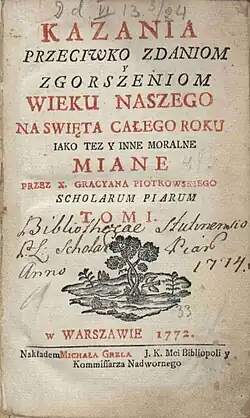 KAZANIA
PRZECIWKO ZDANIOM
Y
ZGORSZENIOM
WIEKU NASZEGO
NA SWIĘTA CAŁEGO ROKU
IAKO TEZ Y INNE MORALNE
MIANE
PRZEZ X. GRACYANA PIOTROWSKIEGO
SCHOLARUM PIARUM
TOM I.
Bibliothecae
Scholar Piar
Anno
w WARSZAWIE 1772.
Nakładem MICHAŁA GRELA J. K. Mci Bibliopoli y
Kommissarza Nadwornego